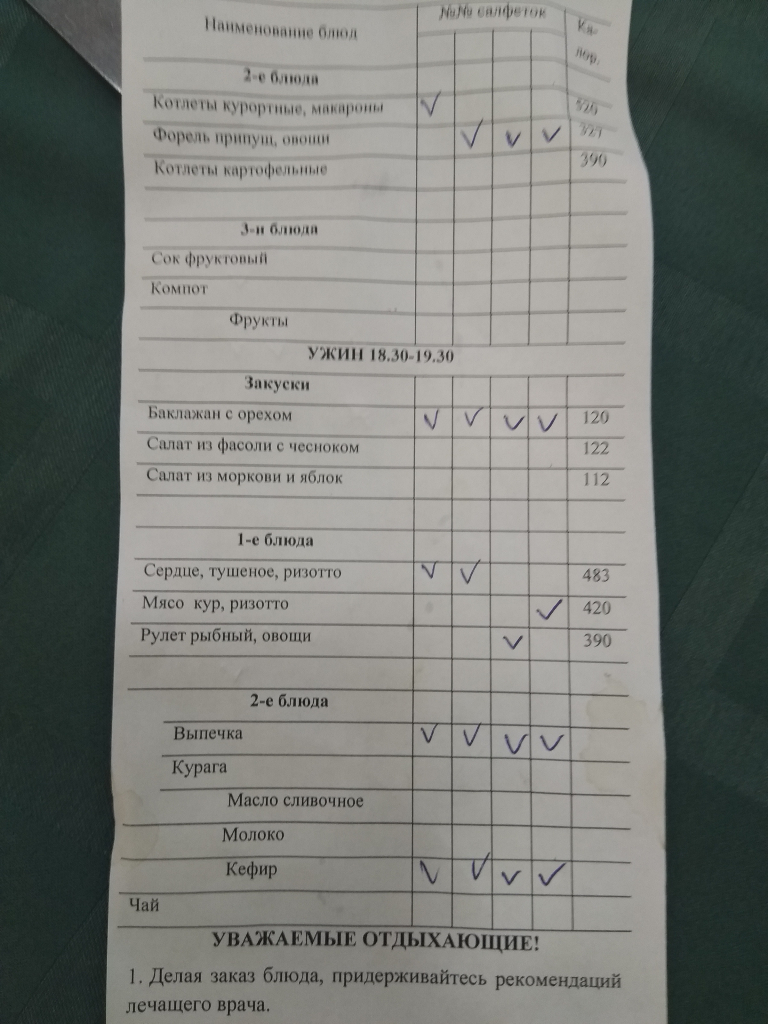 Наименование блюд №№ салфеток Ка-
лор.
2-е блюда
Котлеты курортные, макароны 520
Форель припущ, овощи 327
Котлеты картофельные 390
3-и блюда
Сок фруктовый
Компот
Фрукты
УЖИН 18.30-19.30
Закуски
Баклажан с орехом 120
Салат из фасоли с чесноком 122
Салат из моркови и яблок 112
1-е блюда
Сердце, тушеное, ризотто 483
Мясо кур, ризотто 420
Рулет рыбный, овощи 390
2-е блюда
Выпечка
Курага
Масло сливочное
Молоко
Кефир
Чай
УВАЖАЕМЫЕ ОТДЫХАЮЩИЕ!
1. Делая заказ блюда, придерживайтесь рекомендаций
лечащего врача.